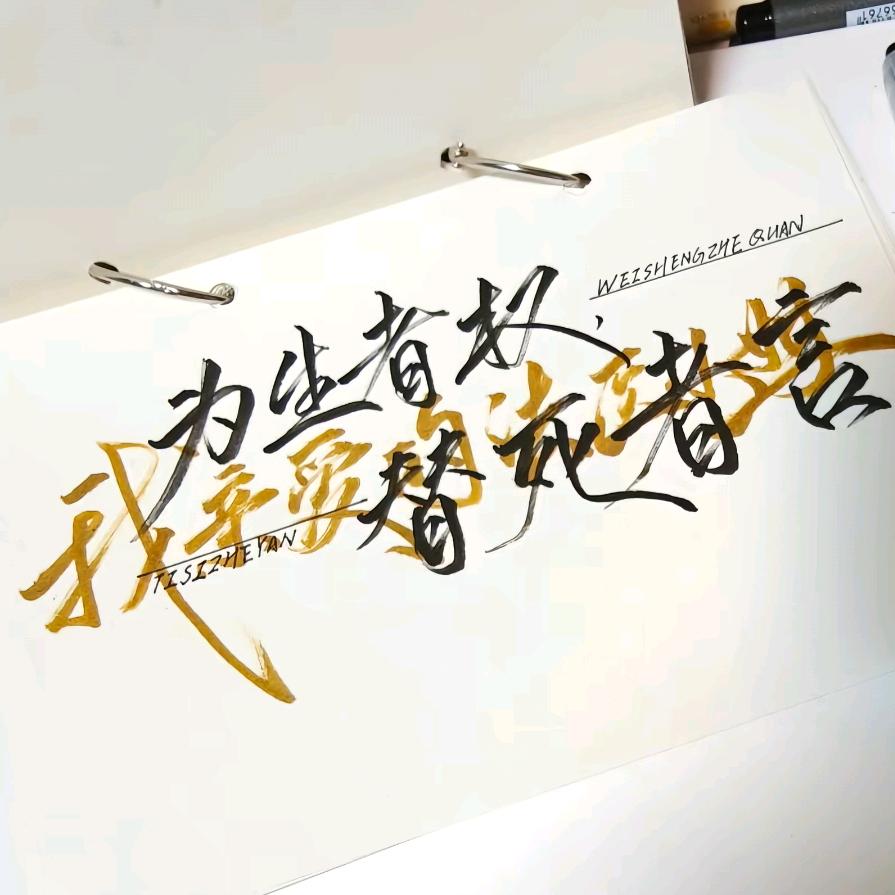 WEISHENGZHE QUAN
为生者权，
替死者言
我亲爱的法医小姐
TISIZHEYAN